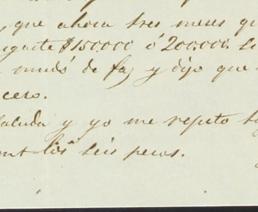 , que ahora tres meses qu
iquete $150000 ó 200000. Lo
mudó de faz y dijo que
cero.
saluda y yo me repito Su
seis pesos.